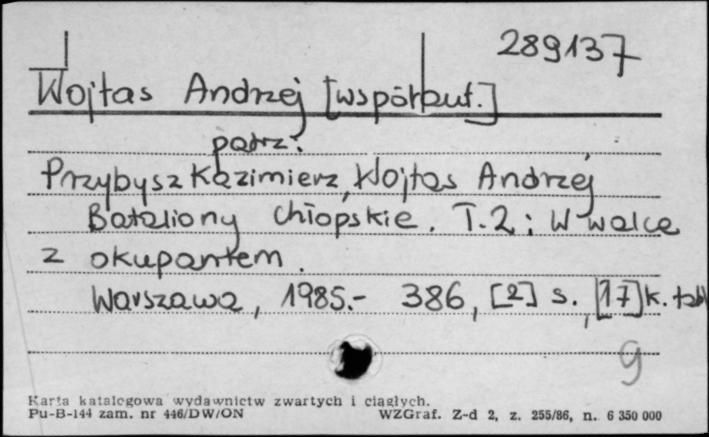 289137
Wojtas Andrzej [współaut.]
patrz:
Przybysz Kazimierz, Wojtas Andrzej
Bataliony Chłopskie. T.2: W walce
z okupantem.
Warszawa, 1985.- 386, [2] s., [17] k. tabl
9
Karta katalogowa wydawnictw zwartych i ciągłych.
Pu-B-144 zam. nr 446/DW/ON WZGraf. Z-d 2, z. 255/86, n. 6 350 000